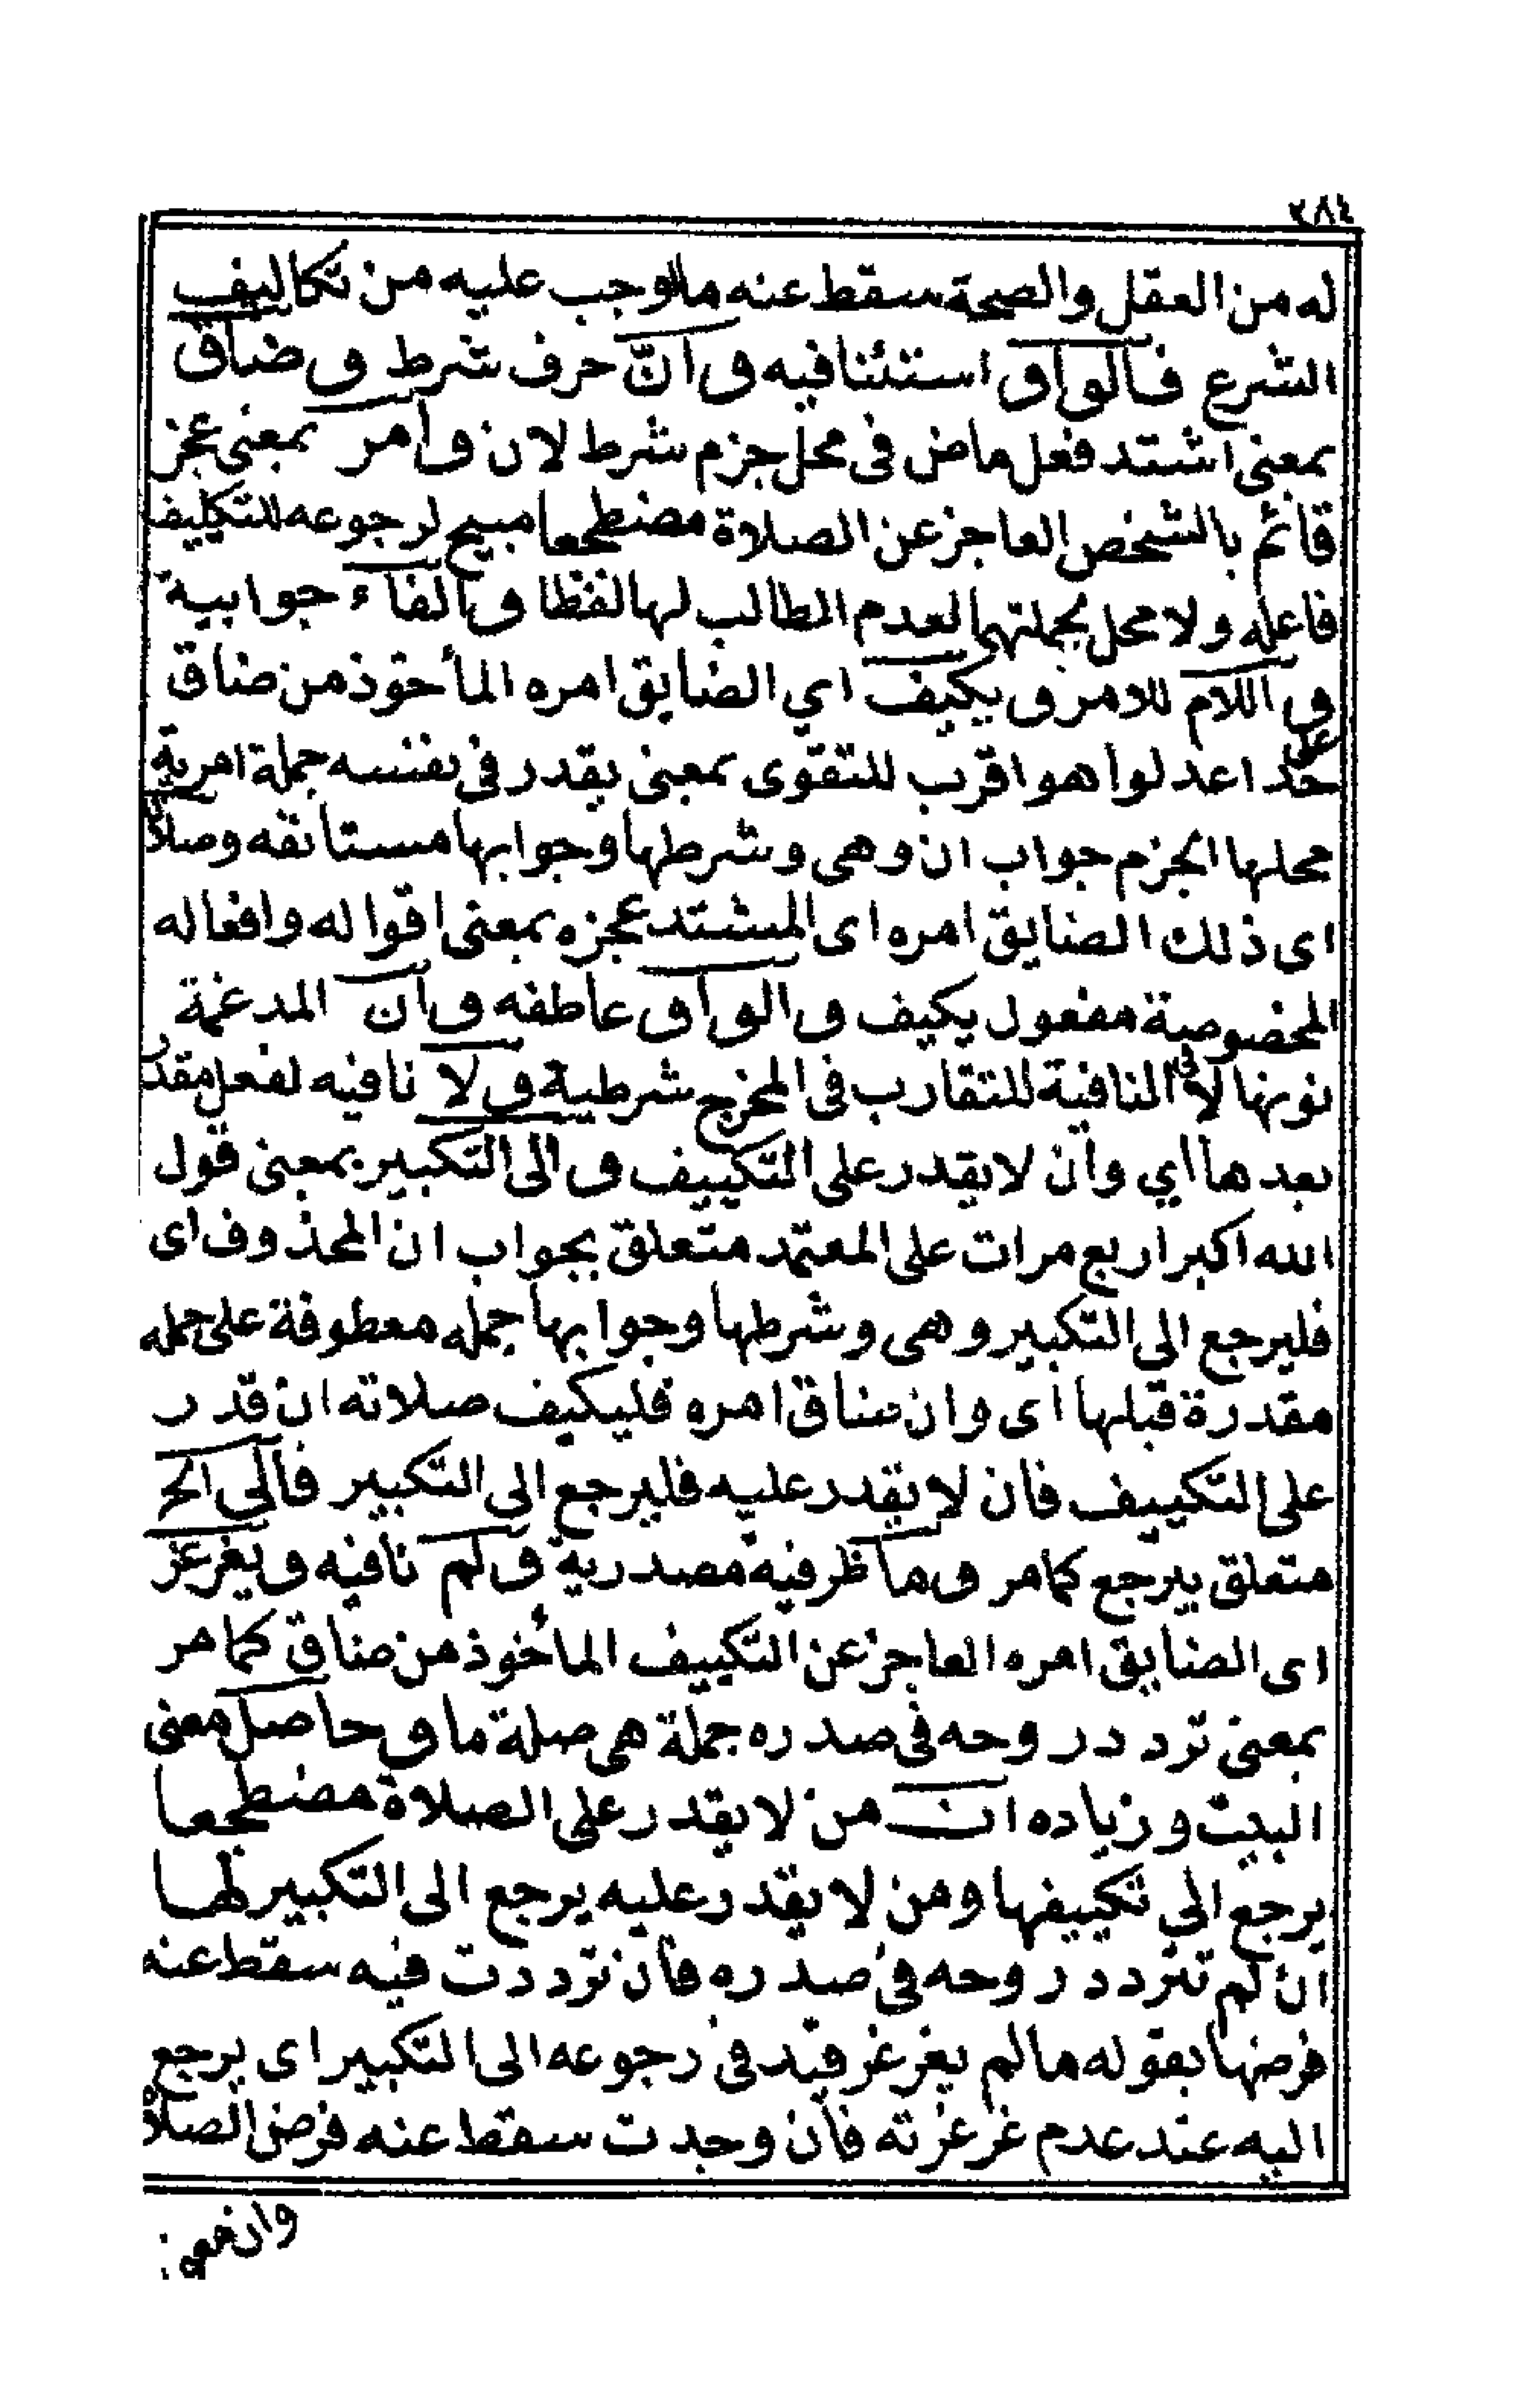 ٢٨٤
له من العقل والصحة سقط عنه ما وجب عليه من تكاليف
الشرع فالواو استئنافيه وان حرف شرط وضاق
بمعنى اشتد فعل ماض في محل جزم شرط لان وامر بمعنى عجز
قائم بالشخص العاجز عن الصلاة مضطجعا مبيح لرجوعه للتكييف
فاعله ولا محل لجملتهما لعدم الطالب لها لفظا والفاء جوابية
واللام للامر ويكيف اي الضايق امره المأخوذ من ضاق
على حد اعدلوا هو اقرب للتقوى بمعنى يقدر في نفسه جملة امرية
محلها الجزم جواب ان وهى وشرطها وجوابها مستانفه وصلاة
اى ذلك الضايق امره اى المشتد عجزه بمعنى اقواله وافعاله
المخصوصة مفعول يكيف والواو عاطفه وان المدغمة
نونها في لا النافية للتقارب في المخرج شرطية ولا نافيه لفعل مقدر
بعدها اي وان لا يقدر على التكييف والى التكبير بمعنى قول
الله اكبر اربع مرات على المعتمد متعلق بجواب ان المحذوف اى
فليرجع الي التكبير وهى وشرطها وجوابها جمله معطوفة على جمله
مقدرة قبلها اى وان ضاق امره فليكيف صلاته ان قدر
على التكييف فان لا يقدر عليه فليرجع الى التكبير فالى الخ
متعلق بيرجع كما مر وما ظرفية مصدرية ولم نافيه ويغرغر
اى الضايق امره العاجز عن التكييف المأخوذ من ضاق كما مر
بمعنى تردد روحه في صدره جملة هى صلة ما وحاصل معنى
البيت وزياده ان من لا يقدر على الصلاة مضطجعا
يرجع الي تكييفها ومن لا يقدر عليه يرجع الى التكبير لها
ان لم تتردد روحه في صدره فان ترددت فيه سقط عنه
فرضها بقوله ما لم يغرغر قيد في رجوعه الى التكبير اى يرجع
اليه عند عدم غرغرته فان وجدت سقط عنه فرض الصلاة